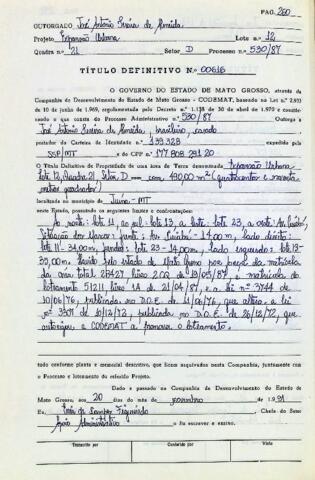 PAG. 260
OUTORGADO José Antônio Pereira de Almeida
Projeto Expansão Urbana Lote n.° 12
Quadra n.° 21 Setor D Processo n.° 530/87
TÍTULO DEFINITIVO N.° 00616
O GOVERNO DO ESTADO DE MATO GROSSO, através da
Companhia de Desenvolvimento do Estado de Mato Grosso - CODEMAT, com base na Lei n.°
de 10 de junho de 1969, regulamentada pelo Decreto n.° de 30 de abril de 1970 e considerando
o que consta do Processo Administrativo n.° 530/87 Outorga a
José Antônio Pereira de Almeida, brasileiro, casado
portador da Carteira de Identidade n.° 139.328 expedida pela
SSP/MT e do CPF n.° 177 808 291 20
O Título Definitivo de Propriedade de uma área de Terra denominada Expansão Urbana
Lote 12, Quadra 21 Setor D com 490,00 m² (quatrocentos e noventa
metros quadrados)
localizada no município de Juína - MT
neste Estado, possuindo os seguintes limites e confrontações:
Ao norte: lote 11, ao sul: lote 13, a leste: lote 23, a oeste: Av.
14,00 m, lado direito:
lote 11 - 35,00 m, fundos: lote 23 - 14,00 m, lado esquerdo: lote 13 -
35,00 m. pelo estado de Mato Grosso por força da matrícula
da área total 27427 livro 2 de 19/05/87, e matrícula do
loteamento 51211 livro 1A de 21/04/87, e a lei n° 3744 de
10/06/76, publicada no D.O.E. de 11/06/76, que altera a lei
n° 3307 de 18/12/72, publicada no D.O.E. de 26/12/72, que
autorizou a CODEMAT a promover o loteamento.
tudo conforme planta e memorial descritivo, que ficam arquivados nesta Companhia, juntamente com
o Processo e loteamento do referido Projeto.
Dado e passado na Companhia de Desenvolvimento do Estado de
Mato Grosso, aos 20 dias do mês de novembro de 1991
Eu, Figueiredo Chefe do Setor
Apoio Administrativo o fiz escrever e assino.
Transcrito por Conferido por Visto